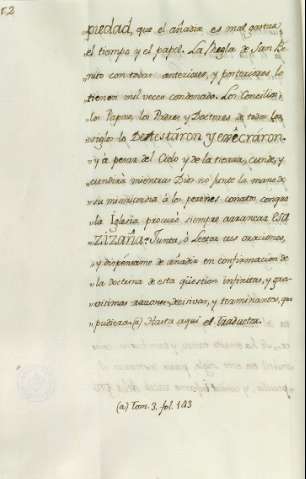 52
piedad, que el añadir es mal gastar
"el tiempo y el papel. La Regla de San Be-
"nito con todas anteriores, y posteriores, lo
"tienen mil veces condenado. Los Concilios,
"los Papas, los Padres y Doctores de todos los
"siglos lo Detestáron, y execráron.
"y á pesar del Cielo y de la tierra, cunde, y
"cundirá mientras Dios no ponte la mano de
"su misericordia á los perennes conatos conque
"la Iglesia procuró siempre arrancar esa
"Zizaña. Junta, ó Lector tus oraciones,
"y dispénsame de añadir en confirmación de
"la doctrina de esta qüestion infinitas, y gra-
"vísimas razones, decisivas, y terminantes, que
"pudiera. (a) Hasta aquí el Traductor.
(a) Tom. 3. fol. 143